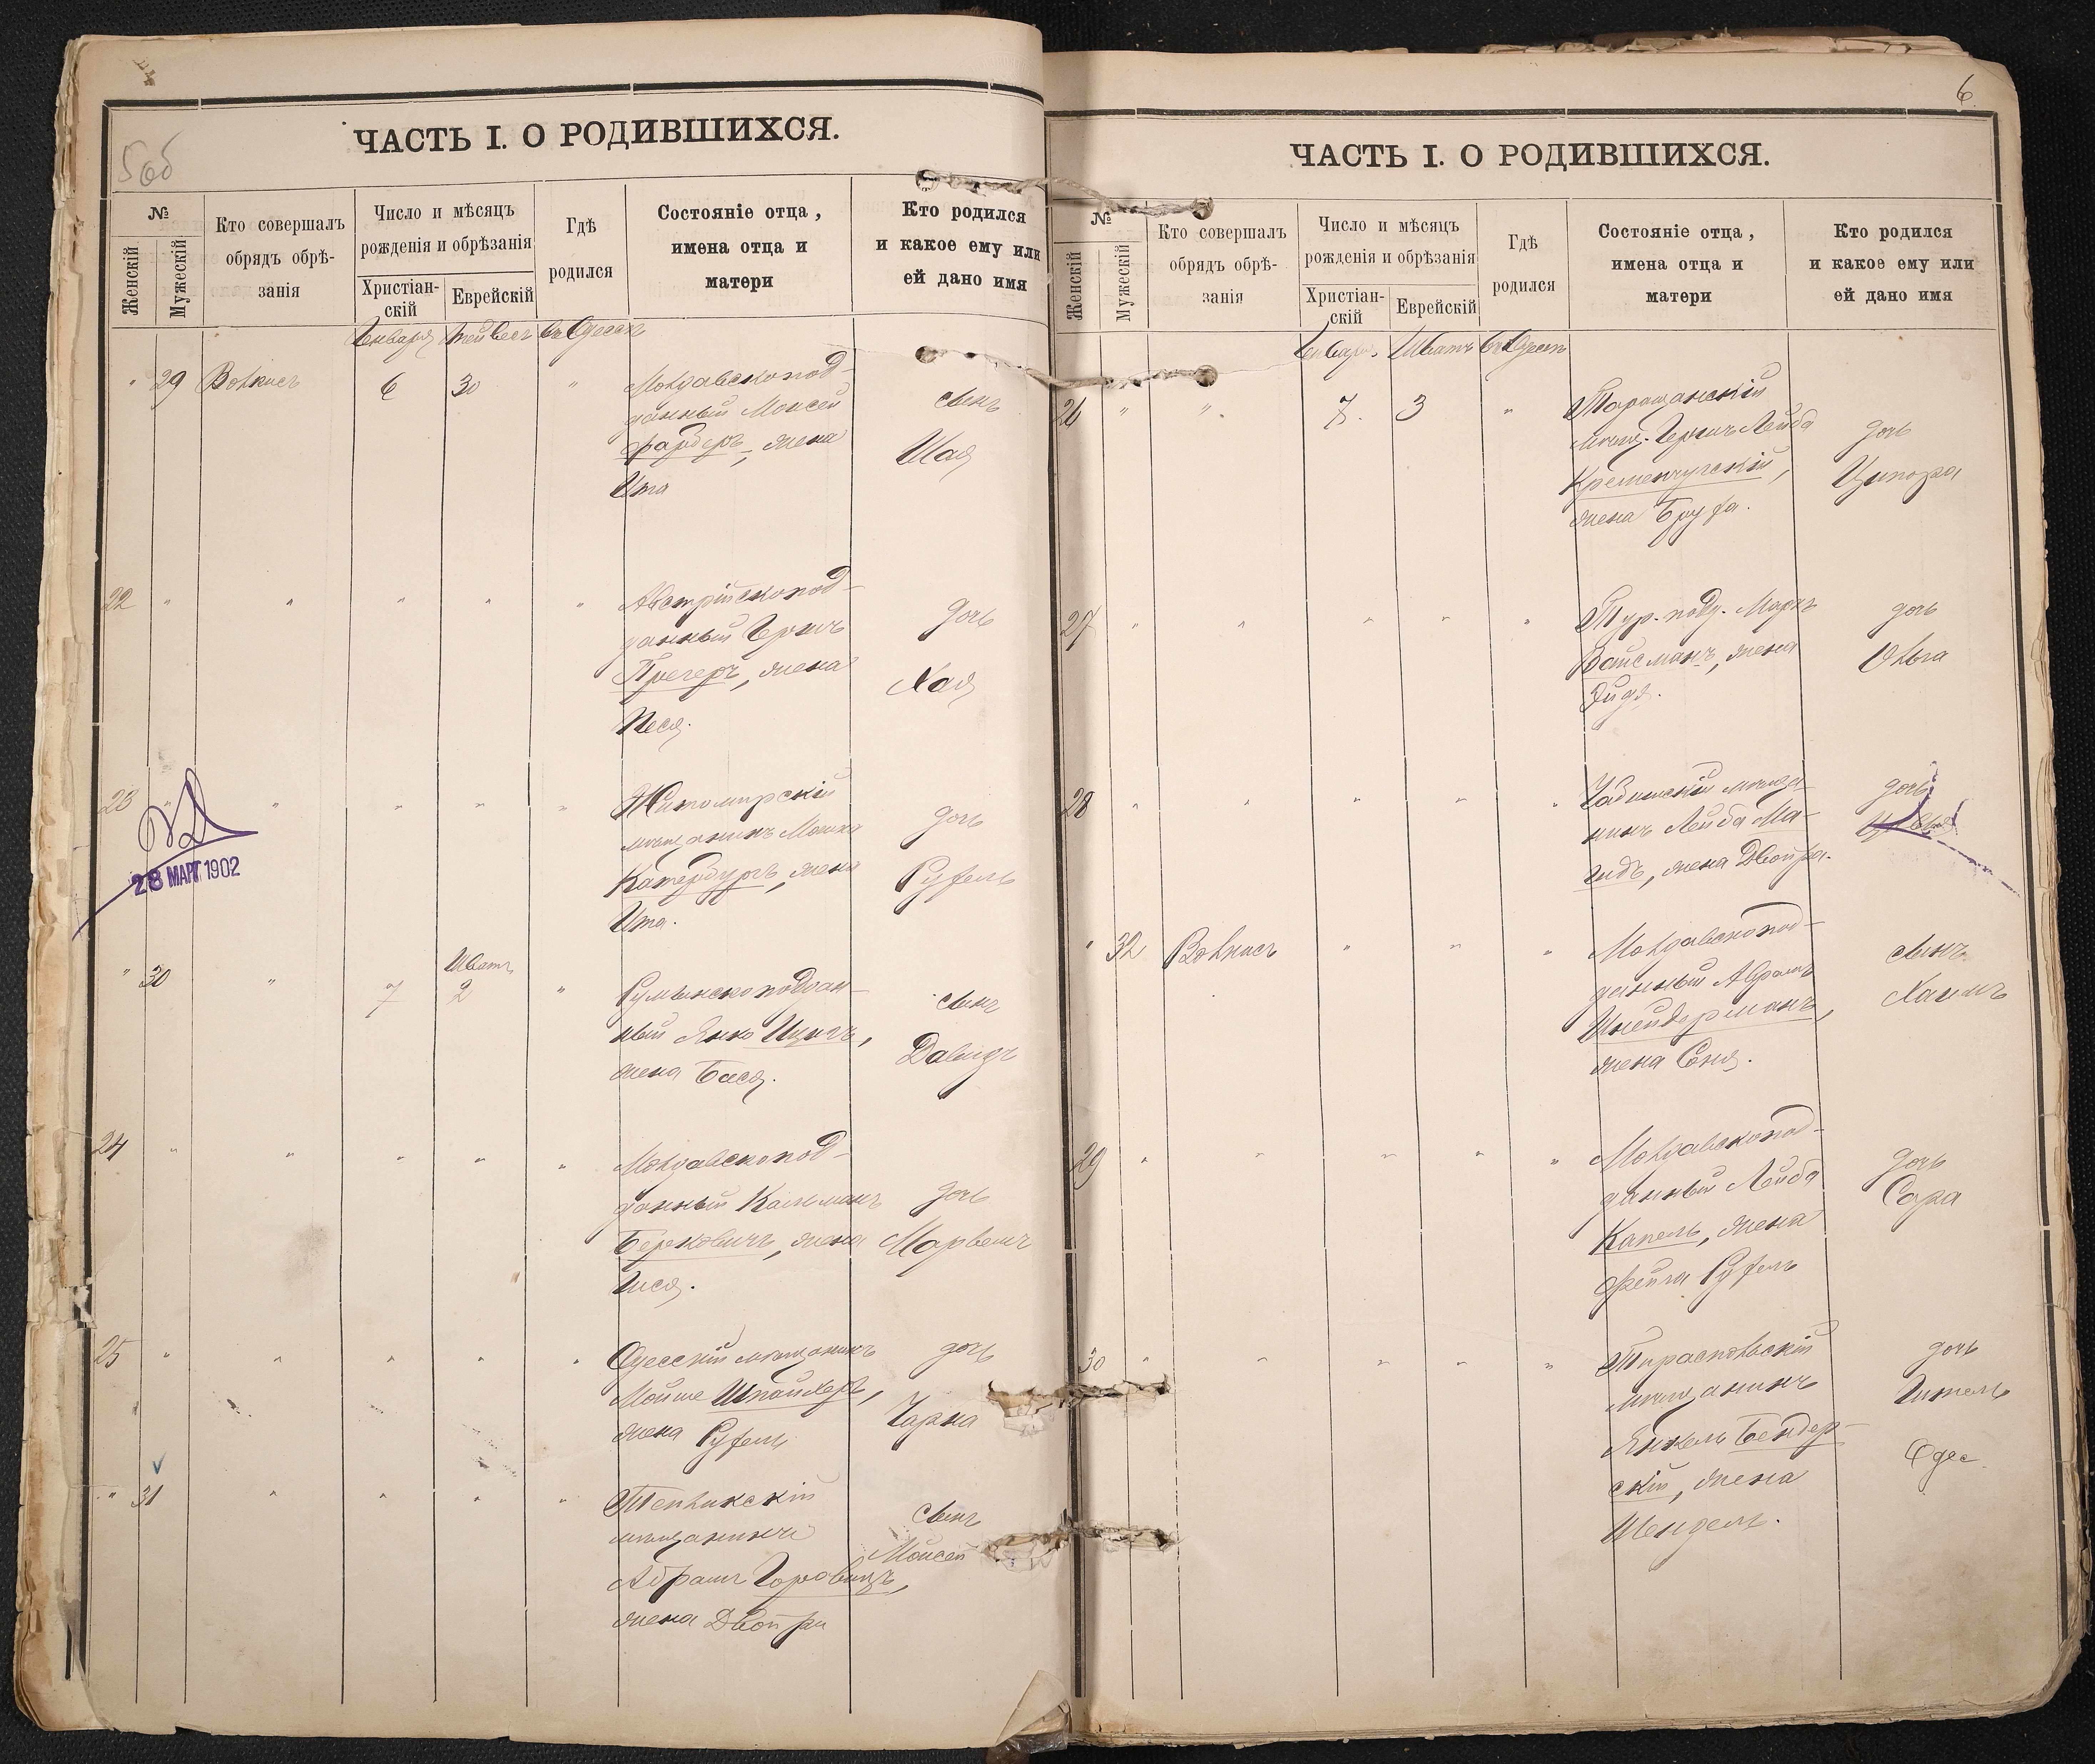 5об
ЧАСТЬ I. О РОДИВШИХСЯ.
№
Женскій
Мужескій
Кто совершалъ
обрядъ обрѣ-
занія
Число и мѣсяцъ
рожденія и обрѣзанія
Христіан-
скій
Еврейскій
Гдѣ
родился
Состояніе отца,
имена отца и
матери
Кто родился
и какое ему или
ей дано имя
Января Тейвесъ въ Одессѣ
" 29 Волкисъ 6 30 " Молдавскопод-
данный Моисей
Фарберъ, жена
Ита
сынъ
Шая
22 " " " " " Австрійскопод-
данный Гершъ
Прегеръ, жена
Песя.
дочь
Хая
23 " " " " " Житомирскій
мѣщанинъ Мошко
жена
Ита.
дочь
Рухель
28 МАРТ 1902
Шватъ
" 30 " 7 2 " Румынскоподдан-
ный Янко Ицигъ,
жена Бася.
сынъ
Давидъ
24 " " " " " Молдавскопод-
данный Кальманъ
Берковичъ, жена
дочь
25 " " " " " Одесскій мѣщанинъ
Мойше Шпайхеръ,
жена Рухель
дочь
Чарна
" 31 " " " " Тепликскій
мѣщанинъ
Абрамъ Горовицъ,
жена Двойра
сынъ
Моисей
6
ЧАСТЬ I. О РОДИВШИХСЯ.
№
Женскій
Мужескій
Кто совершалъ
обрядъ обрѣ-
занія
Число и мѣсяцъ
рожденія и обрѣзанія
Христіан-
скій
Еврейскій
Гдѣ
родился
Состояніе отца,
имена отца и
матери
Кто родился
и какое ему или
ей дано имя
Января Шватъ въ Одессѣ
26 " " 7. 3 " Таращанскій
мѣщ. Гершъ Лейба
Кременчугскій,
жена Бруха.
дочь
Ципора
27 " " " " " Тур. подд. Маркъ
Вайсманъ, жена
дочь
Ольга
28 " " " " " мѣща-
нинъ Лейба Ма-
гидъ, жена Двойра.
дочь
" 32 Волкисъ " " " Молдавскопод-
данный Абрамъ
Шнейдерманъ,
жена Соня.
сынъ
Хаимъ
29 " " " " " Молдавскопод-
данный Лейба
Капель, жена
Фейга Рухель
дочь
Сара
30 " " " " " Тираспольскій
мѣщанинъ
Янкель Бендер-
скій, жена
Шендель.
дочь
Гитель
Одес